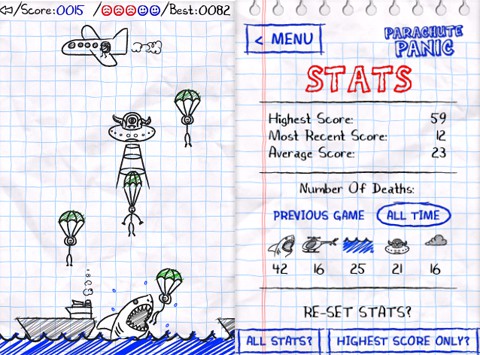 /Score:0015 / /Best:0082
< MENU
PARACHUTE
PANIC
STATS
Highest Score: 59
Most Recent Score: 12
Average Score: 23
Number Of Deaths:
PREVIOUS GAME ALL TIME
42 16 25 21 16
RE-SET STATS?
ALL STATS? HIGHEST SCORE ONLY?